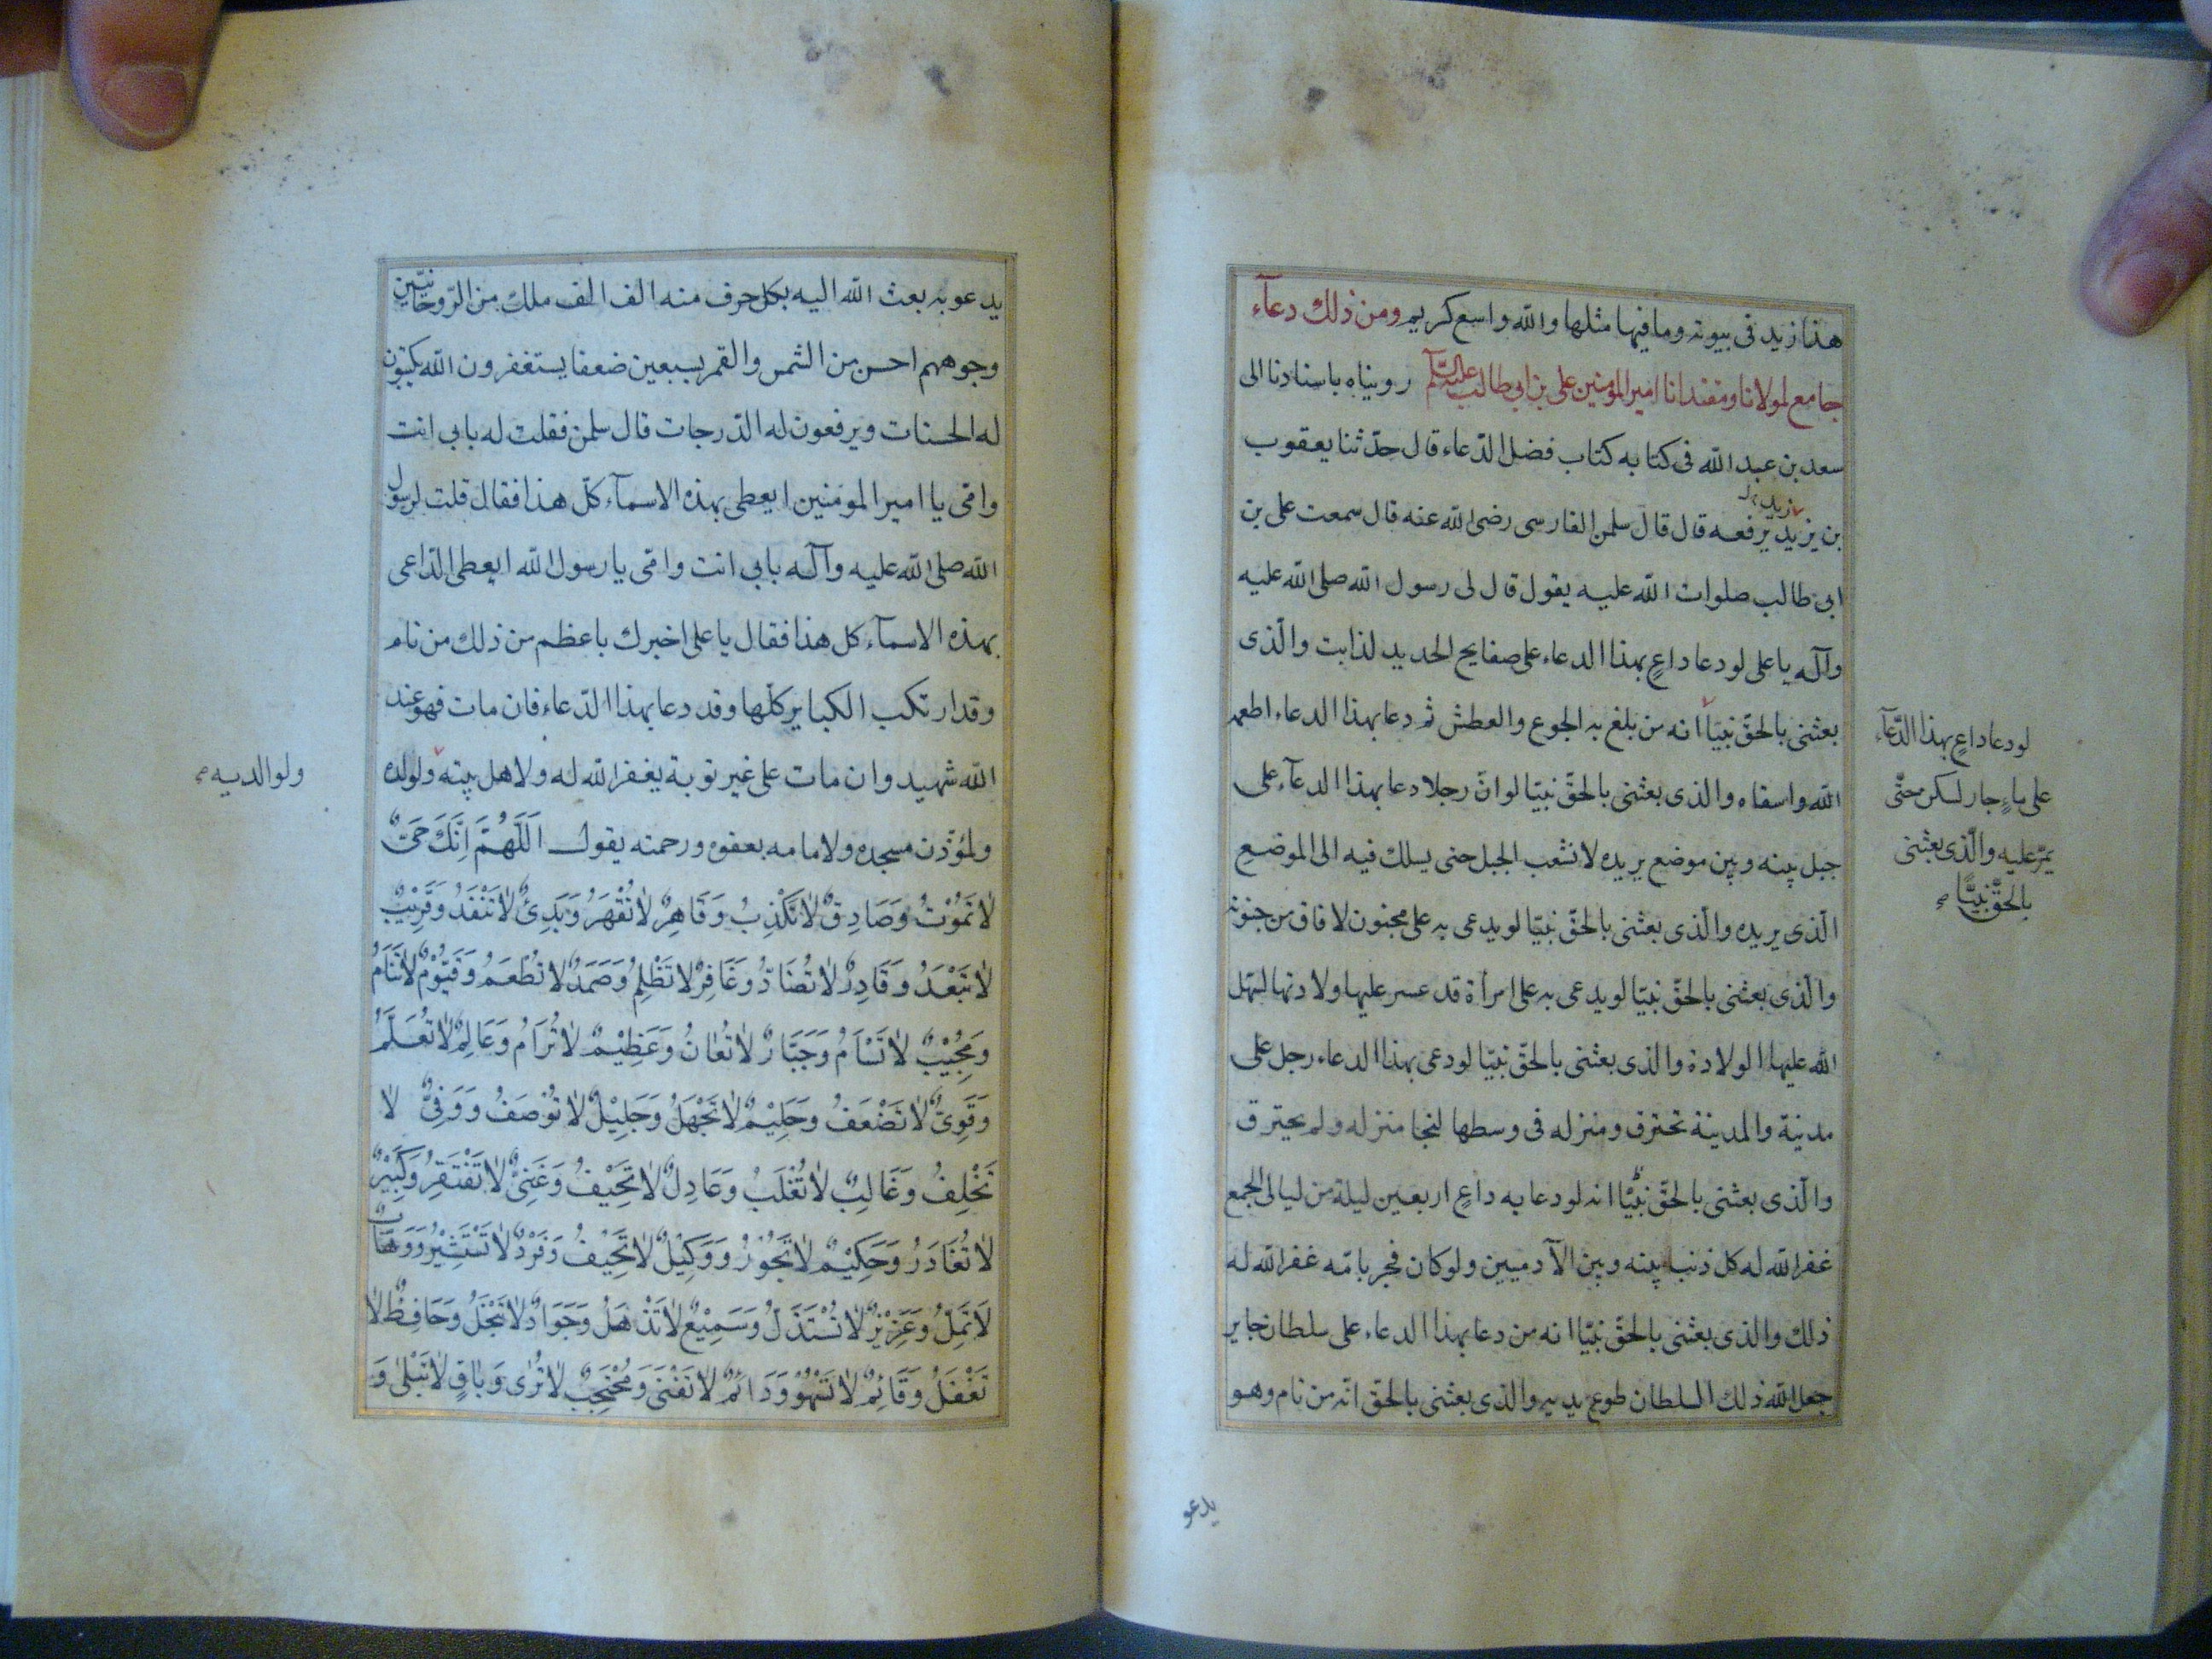 هذا زيد فى بيوته وما فيها مثلها والله واسع كريم ومن ذلك دعآء
جامع لمولانا ومقتدانا امير المومنين على بن ابى طالب عليه السّلم رويناه باسنادنا الى
سعد بن عبد الله فى كتابه كتاب فضل الدّعاء قال حدّثنا يعقوب
زيد
بن يزيد يرفعه قال قال سلمن الفارسى رضى الله عنه قال سمعت على بن
ابى طالب صلوات الله عليه يقول قال لى رسول الله صلى الله عليه
وآله يا على لو دعا داعٍ بهذا الدعاء على صفايح الحديد لذابت والّذى
بعثنى بالحقّ نبيّا انه من بلغ به الجوع والعطش ثم دعا بهذا الدعاء اطعمه
الله واسقاه والذى بعثنى بالحقّ نبيّا لو انّ رجلا دعا بهذا الدعآء على
جبل بينه وبين موضع يريده لانشعب الجبل حتى يسلك فيه الى الموضع
الّذى يريده والّذى بعثنى بالحقّ نبيّا لو يدعى به على مجنون لافاق من جنونه
والّذى بعثنى بالحقّ نبيّا لو يدعى به على امرأة قد عسر عليها ولادتها لسهّل
الله عليها الولادة والذى بعثنى بالحقّ نبيّا لو دعى بهذا الدعاء رجل على
مدينة والمدينة تحترق ومنزله فى وسطها لنجا منزله ولم يحترق
والّذى بعثنى بالحقّ نبيًّا انه لو دعا به داعٍ اربعين ليلة من ليالى الجمع
غفر الله له كل ذنب بينه وبين الآدميين ولو كان فجر بامّه غفر الله له
ذلك والذى بعثنى بالحقّ نبيّا انه من دعا بهذا الدعاء على سلطان جاير
جعل الله ذلك السلطان طوع يديه والذى بعثنى بالحقّ انّه من نام وهو
يدعو
لو دعا داعٍ بهذا الدّعآء
على ماءٍ جار لسكن حتّى
يمرّ عليه والّذى بعثنى
بالحقّ نبيًّا
يدعو به بعث الله اليه بكل حرف منه الف الف ملك من الرّوحانيّين
وجوههم احسن من الشمس والقمر بسبعين ضعفا يستغفرون الله يكتبون
له الحسنات ويرفعون له الدّرجات قال سلمن فقلت له بابى انت
وامّى يا امير المومنين ايعطى بهذه الاسمآء كلّ هذا فقال قلت لرسول
الله صلى الله عليه وآله بابى انت وامّى يا رسول الله ايعطى الدّاعى
بهذه الاسمآء كل هذا فقال يا على اخبرك باعظم من ذلك من نام
وقد ارتكب الكباير كلّها وقد دعا بهذا الدّعاء فان مات فهو عند
الله شهيد وان مات على غير توبة يغفر الله له ولاهل بيته ولولده
ولمؤذّن مسجده ولامامه بعفوه ورحمته يقول اَللّٰهُمَّ اِنَّكَ حَىٌّ
لاٰ تَمُوْتُ وَصَادِقٌ لاٰ تَكْذِبُ وَقَاهِرٌ لاٰ تُقْهَرُ وَبَدِئٌ لاٰ تَنْفَدُ وَقَرِيْبٌ
لاٰ تَبْعَدُ وَقَادِرٌ لاٰ تُضَادُّ وَغَافِرٌ لاٰ تَظْلِمُ وَصَمَدٌ لاٰ تُطْعَمُ وَقَيُّوْمٌ لاٰ تَنَامُ
وَمُجِيْبٌ لاٰ تَسْاَمُ وَجَبَّارٌ لاٰ تُعٰانُ وَعَظِيْمٌ لاٰ تُرَامُ وَعَالِمٌ لاٰ تُعَلَّمُ
وَقَوِىٌّ لاٰ تَضْعَفُ وَحَلِيْمٌ لاٰ تَجْهَلُ وَجَلِيْلٌ لاٰ تُوْصَفُ وَوَفِىٌّ لاٰ
تَخْلِفُ وَغَالِبٌ لاٰ تُغْلَبُ وَعَادِلٌ لاٰ تَحِيْفُ وَغَنِىٌّ لاٰ تَفْتَقِرُ وَكَبِيْرٌ
لاٰ تُغَادَرُ وَحَكِيْمٌ لاٰ تَجُوْرُ وَوَكِيْلٌ لاٰ تَحِيْفُ وَفَرْدٌ لاٰ تَسْتَشِيْرُ وَوَهَّابٌ
لاٰ تَمِلُّ وَعَزِيْزٌ لاٰ تُسْتَذَلُ وَسَمِيْعٌ لاٰ تَذْهَلُ وَجَوَادٌ لاٰ تَبْخَلُ وَحَافِظٌ لاٰ
تَغْفَلُ وَقَائِمٌ لاٰ تَسْهُوْ وَدَائِمٌ لاٰ تَفْنَى وَمُحْتَجِبٌ لاٰ تُرٰى وَبٰاقٍ لاٰ تَبْلٰى وَ
ولوالديه